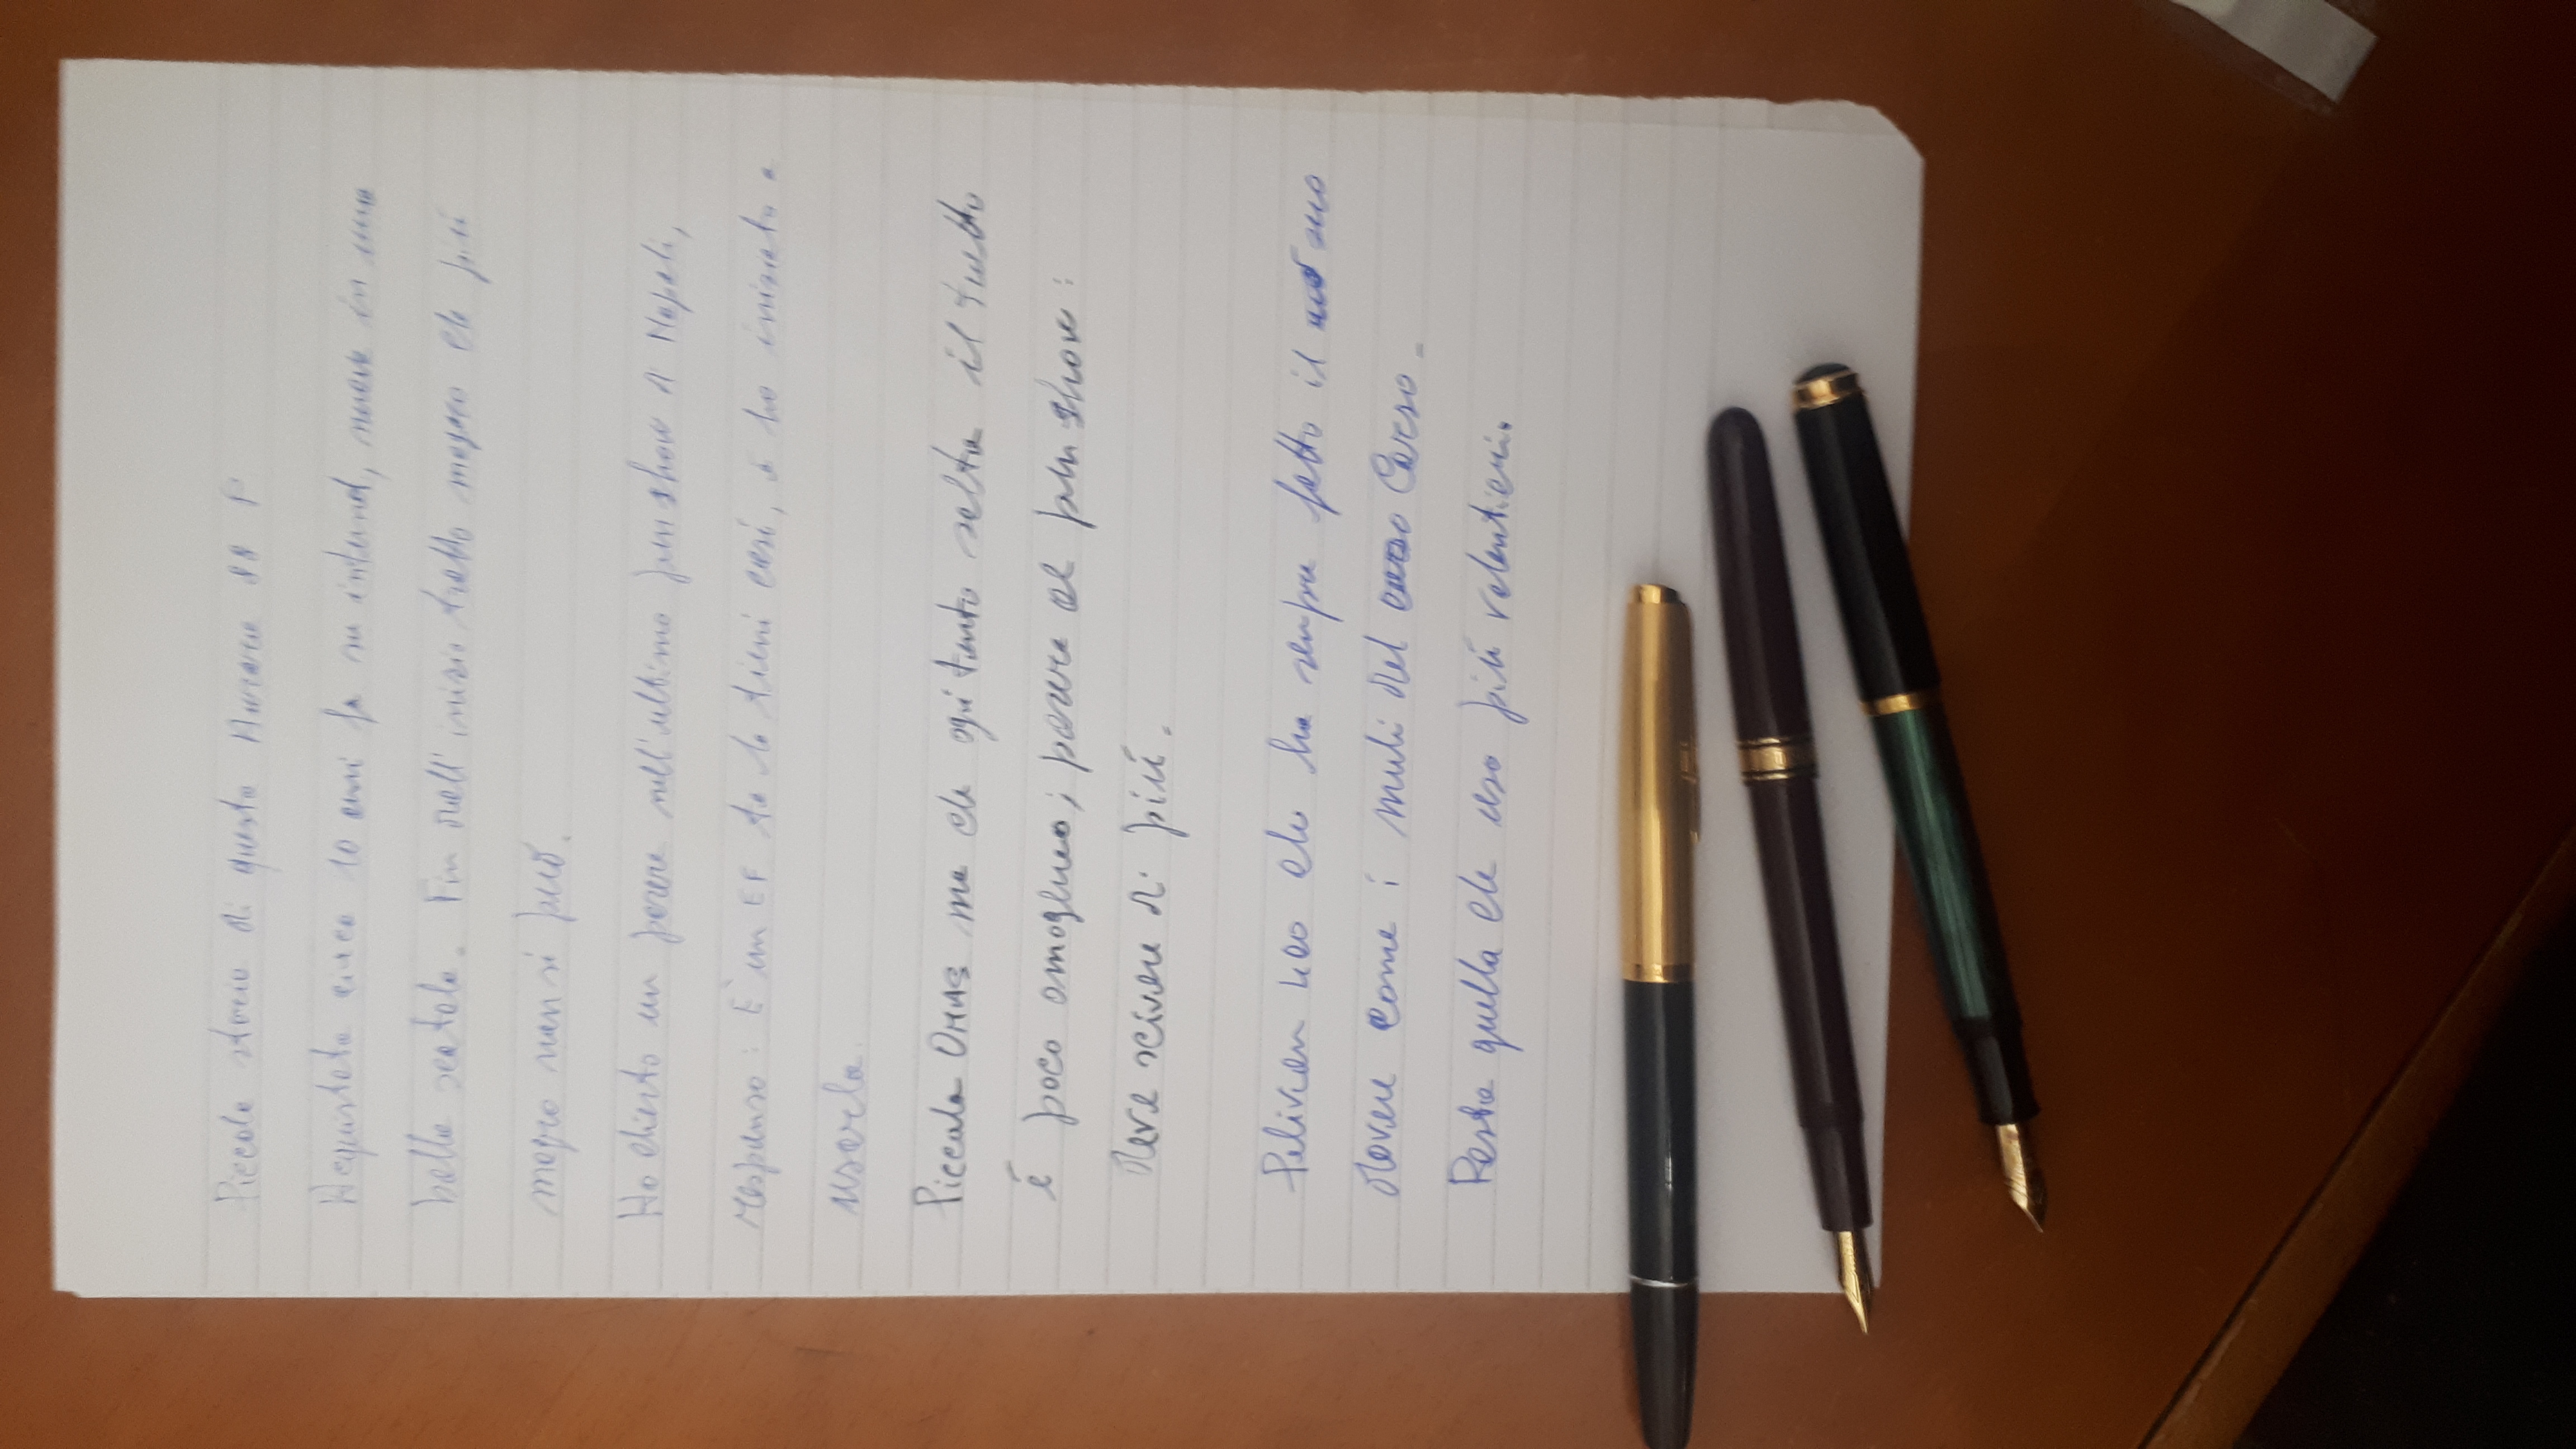 Piccola storia di questa Aurora 88 P
Acquistata circa 10 anni fa su internet, nuova in una
bella scatola. Fin dall'inizio tratto magro che più
magro non si può.
Ho chiesto un parere nell'ultimo pen show a Napoli,
responso: È un EF te la tieni così, e ho iniziato a
usarla.
Piccola OMAS ma che ogni tanto salta il tratto
è poco omogenea; parere al pen show:
deve scivere di più.
Pelikan 400 che ha sempre fatto il suo
dovere come i muli del Carso.
Resta quella che uso più volentieri.